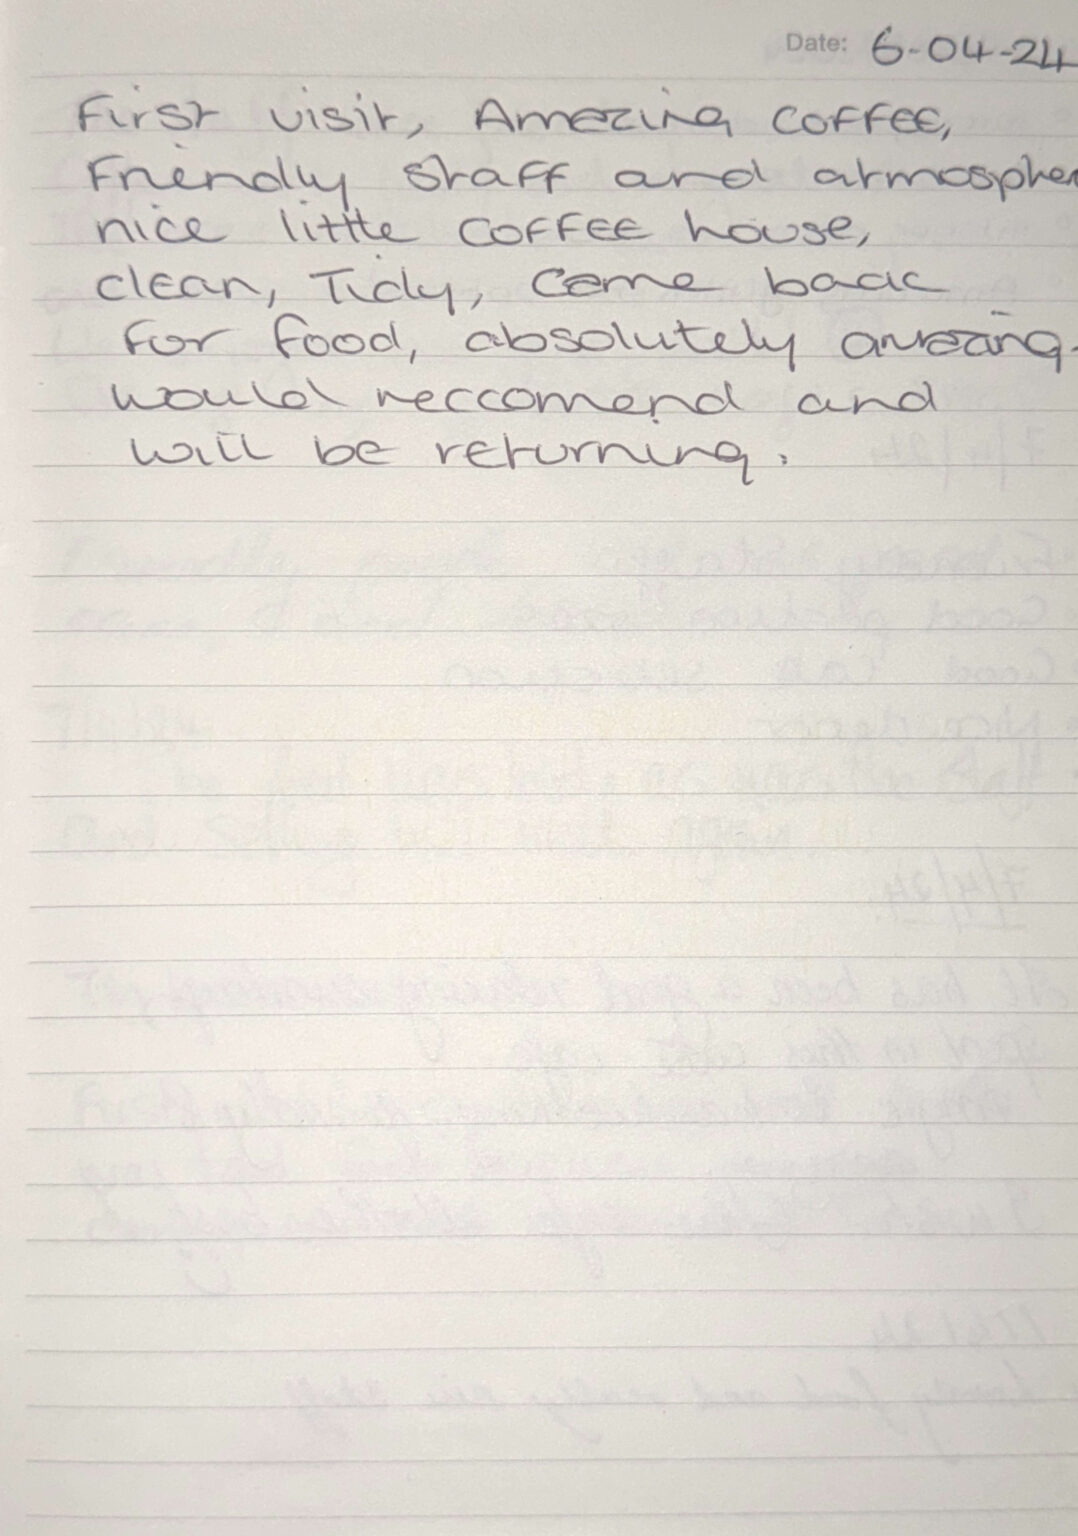 Date: 6-04-24
First visit, Amezing coffee,
Friendly staff and atmospher
nice little coffee house,
clean, Tidy, Came back
for food, absolutely amazing.
would reccomend and
will be returning.